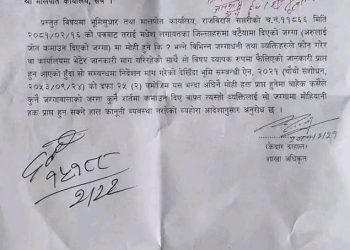 श्री मालपोत कार्यालय, सबै ।
प्रस्तुत विषयमा भूमिसुधार तथा मालपोत कार्यालय, राजविराज सप्तरीको च.नं.११८६६ मिति
२०८१/०२/१६ को पत्रबाट तराई मधेश लगायतका जिल्लाहरुमा बटैयामा दिएको जग्गा (अरुलाई
जोत कमाउन दिएको जग्गा) मा मोही हुने कि ? भन्ने विभिन्न जग्गाधनी तथा व्यक्तिहरुले फोन गरेर
वा कार्यालयमा भेटेर जानकारी माग गरिरहेको साथै सो विषय व्यापक रुपमा फैलिएको जानकारी प्राप्त
हुन आएको हुँदा सो सम्बन्धमा निर्देशन माग गरेको देखिँदा भूमि सम्बन्धी ऐन, २०२१ (पाँचौ संशोधन,
२०५३/०९/२४) को दफा २५ (२) वमोजिम यस बन्दा अघिनै मोही हक प्राप्त हुनेमा बाहेक कसैले
कुनै जग्गावालाको जग्गा कुनै शर्तमा कमाउन दिए वापत त्यस्तो व्यक्तिलाई सो जग्गामा मोहियानी
हक प्राप्त हुन सक्ने हाल कानूनी व्यवस्था नरहेको व्यहोरा आदेशानुसार अनुरोध छ ।
(केदार दाहाल)
शाखा अधिकृत
१५१८८
२/२२